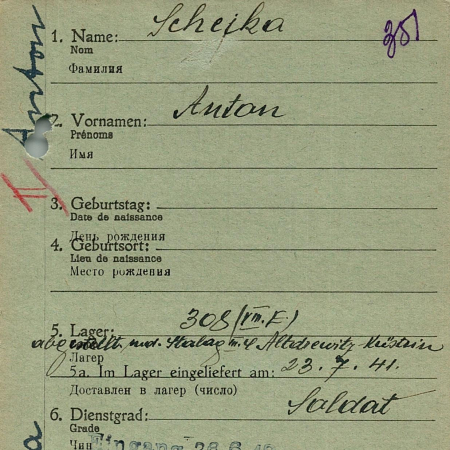 Schejka
1. Name:
Nom
Фамилия
Anton
2. Vornamen:
Prénoms
Имя
3. Geburtstag:
Date de naissance
День рождения
4. Geburtsort:
Lieu de naissance
Место рождения
5. Lager: 308 (VIII.E.)
Stalag Altdrewitz-Küstrin
Лагер
5a. Im Lager eingeliefert am: 23.7.41.
Доставлен в лагер (число)
6. Dienstgrad: Soldat
Grade
Чин
Eingang 26.6.42
Anton